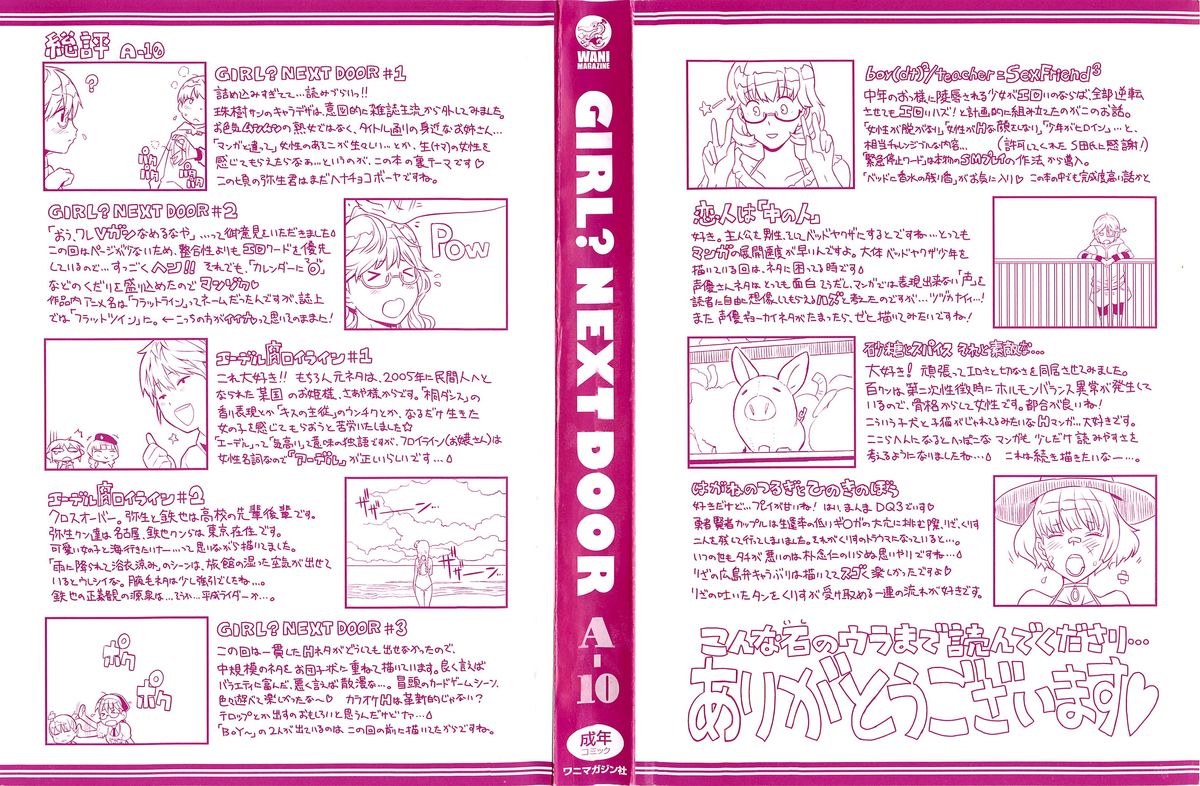 総評 A-10
GIRL? NEXT DOOR #1
詰め込みすぎてて…読みづらいっ!!
珠樹サンのキャラデザは、意図的に雑誌主流から外してみました。
お色気ムンムンの熟女ではなく、タイトル通りの身近なお姉さん…
「マンガと違って」女性のあそこが生々しい…とか、生(ナマ)の女性を
感じてもらえたらなぁ…というのが、この本の裏テーマです♡
この頃の弥生君はまだヘナチョコボーヤですね。
?
ポクポク
ポクポク
GIRL? NEXT DOOR #2
「おう、ワレVガンなめるなや」…って御意見をいただきました
この回はページが少ないため、整合性よりもエロワードを優先
しているので…すっごくヘン!! それでも、「カレンダーに
などのくだりを盛り込めたのでマンゾク♡
作品内アニメ名は「フラットライン」ってネームだったんですが、誌上
では「フラットツイン」に。←こっちの方がイイナ♡って思いてのまました!
POW
エーデル腐ロイライン #1
これ大好き!! もちろん元ネタは、2005年に民間人へと
なられた某国のお姫様、さあや様からです。「桐ダンス」の
香り表現とか「キスの主従」のウンチクとか、なるだけ生きた
女の子と感じてもらおうと苦労いたしました☆
「エーデル」って「気高い」て意味の独語ですが、フロイライン(お嬢さん)は
女性名詞なので「アーデル」が正いらしいです…
エーデル腐ロイライン #2
クロスオーバー。弥生と鉄也は高校の先輩後輩です。
弥生クン達は名古屋、鉄也クンらは東京在住です。
可愛い女の子と海行きたいナー…って思いながら描いてました。
「雨に降られて浴衣涼み」のシーンは、旅館の湿った空気が出せて
いるとウレシイな。腕毛ネタは少し強引でしたね…。
鉄也の正義観の源泉は…でうか…平成ライダーか…。
ザザーン…
ザザーン…
GIRL? NEXT DOOR #3
この回は一貫したHネタがどうしても出せなかったので、
中規模のネタをお団子状に重ねて描いています。良く言えば
バラエティに富んだ、悪く言えば散漫な…。冒頭のカードゲームシーン、
色々遊べて楽しかったな〜♡ カラオケHは革新的じゃない?
テロップとか出すのおもしろいと思うんだけどナァ…
「BOY〜」の2人が出ているのは、この回の前に描いてたからですね。
ポク
ポク
WANI
MAGAZINE
GIRL? NEXT DOOR
A-10
成年
コミック
ワニマガジン社
boy(dt)²/teacher=SexFriend³
中年のおっ様に陵辱される少女がエロいのならば、全部逆転
させてもエロいハズ!と計画的に組み立てたのがこのお話。
「女性が脱がない」「女性がHな顔をしない」「少年がヒロイン」…と、
相当チャレンジブルな内容… (許可してくれたS田氏に感謝!)
「緊急停止ワード」は本物のSMプレイの作法から導入。
「ベッドに香水の残り香」がお気に入り♡ この本の中でも完成度高い話かと
恋人は「中の人」
好き。主人公を男性、そしてベッドヤクザにするとですね…とっても
マンガの展開速度が早いんですよ。大体ベッドヤクザ少年を
描いている回は、ネタに困ってる時です
声優さんネタはとっても面白そうだし、マンガでは表現出来ない「声」を
読者に自由に想像してもらえるハズと考えたのですが…ツヅカナイィ…!
また声優ギョーカイネタがたまったら、ぜひ描いてみたいですね!
砂糖とスパイス それと素敵な…
大好き! 頑張ってエロさと切なさを同居させてみました。
百クンは、第二次性徴時にホルモンバランス異常が発生して
いるので、骨格からして女性です。都合が良いね!
こういう子犬と子猫がじゃれてるみたいなHマンガ…大好きです。
ここらへんになるとへっぽこなマンガも少しだけ読みやすさを
考るようになりましたね… これは続き描きたいなー…。
はがねのつるぎとひのきのぼう
好きだけど…プレイが甘いね! はい、まんまDQ3です♡
勇者賢者カップルは生還率の低いギ○ガの大穴に挑む際、りざ、くりす
二人を残して行ってしまいました。それがくりすのトラウマになっていると…。
いつの世もタチが悪いのは朴念仁のいらぬ思いやりですね…
りざの広島弁キャラぶりは描いててスゴく楽しかったですよ♡
りざの吐いたタンをくりすが受け取める一連の流れが好きです。
こんな右のウラまで読んでくださり…
ありがとうございます♡